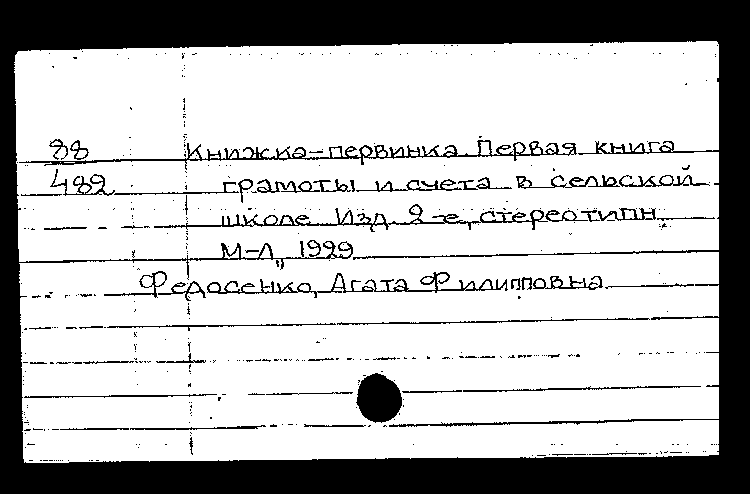 88 Книжка-первинка. Первая книга
482 грамоты и счета в сельской
школе. Изд. 2-е, стереотипн.
М-Л., 1929
Федосенко, Агата Филипповна.